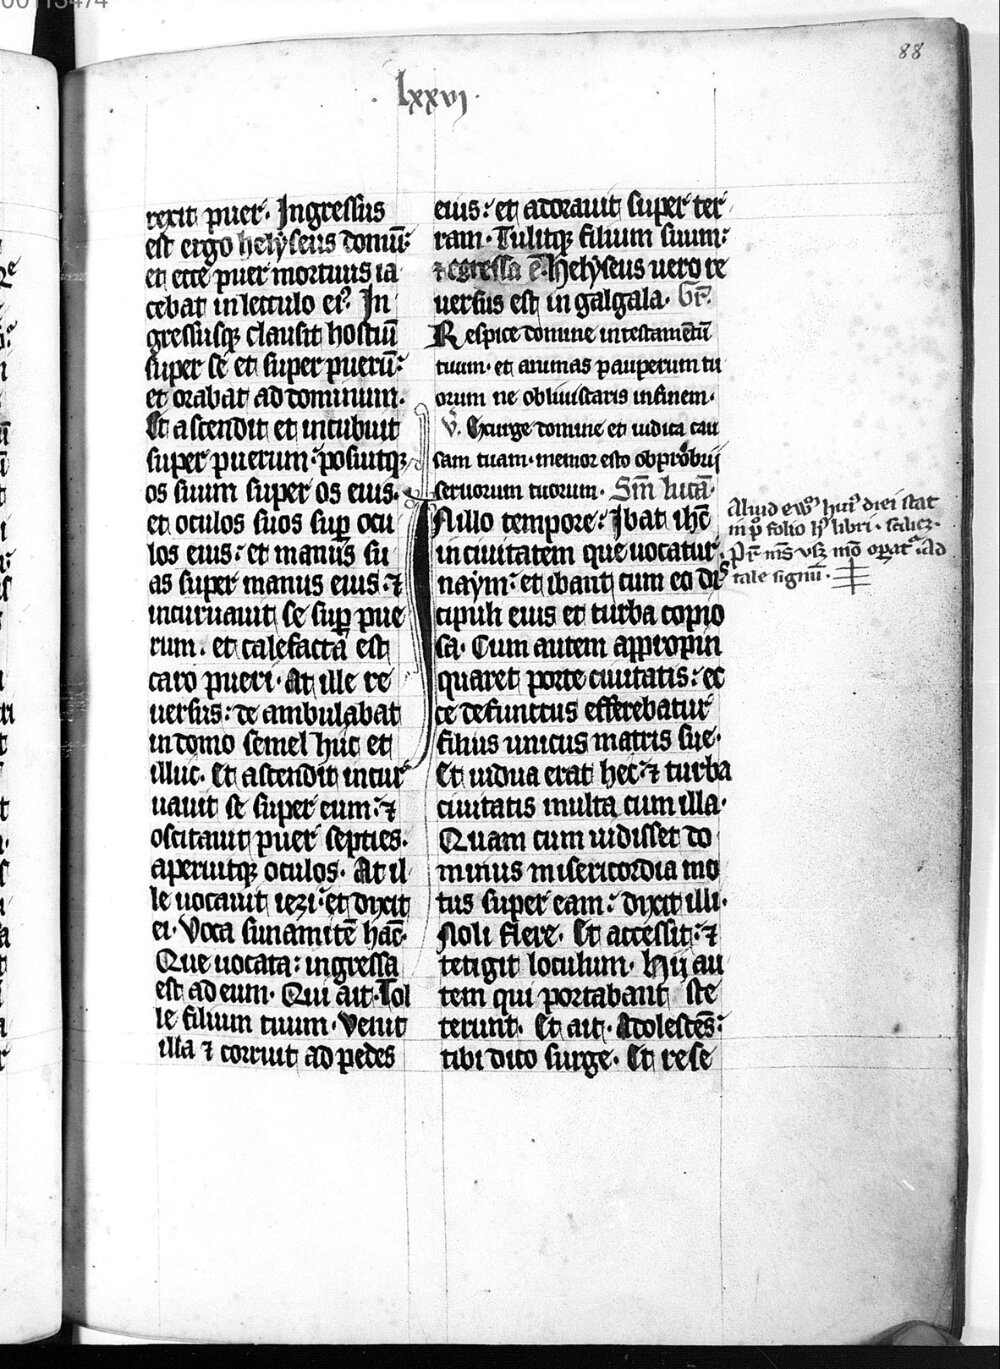 88
lxxvi
rexit puer. Ingressus
est ergo helyseus domū:
et ecce puer mortuus ia
cebat in lectulo eiꝰ. In
gressusqꝫ clausit hostiū
super se et super puerū:
et orabat ad dominum.
Et ascendit et incubuit
super puerum: posuitqꝫ
os suum super os eius.
et oculos suos suꝑ ocu
los eius: et manus su
as super manus eius: ⁊
incuruauit se suꝑ pue
rum. et calefacta est
caro pueri. At ille re
uersus: deambulabat
in domo semel huc et
illuc. Et ascendit incur
uauit se super eum: ⁊
oscitauit puer septies.
aperuitqꝫ oculos. At il
le uocauit iezi: et dixit
ei. Voca sunamitē hāc.
Que uocata: ingressa
est ad eum. Qui ait. Tol
le filium tuum. Venit
illa ⁊ corruit ad pedes
eius: et adorauit super ter
ram. Tulitqꝫ filium suum:
⁊ egressa ē. Helyseus uero re
uersus est in galgala. Gr̄.
Respice domine in testamētū
tuum. et animas pauperum tu
orum ne obliuiscaris in finem.
V̄. Exurge domine et iudica cau
sam tuam. memor esto obprobrii
seruorum tuorum. Sm̄ lucā.
In illo tempore: Ibat ihc̄
in ciuitatem que uocatur
naym: et ibant cum eo dis
cipuli eius et turba copio
sa. Cum autem appropin
quaret porte ciuitatis: ec
ce defunctus efferebatur
filius unicus matris sue.
Et uidua erat hec: ⁊ turba
ciuitatis multa cum illa.
Quam cum uidisset do
minus misericordia mo
tus super eam: dixit illi.
Noli flere. Et accessit: ⁊
tetigit loculum. Hij au
tem qui portabant ste
terunt. Et ait. Adolescēs:
tibi dico surge. Et rese
Aliud ewꝫ huiꝰ diei stat
in pº folio hꝰ libri. scilicꝫ.
Pr̄ ms̄ vsqꝫ mº opat̄. Ad
tale signū.